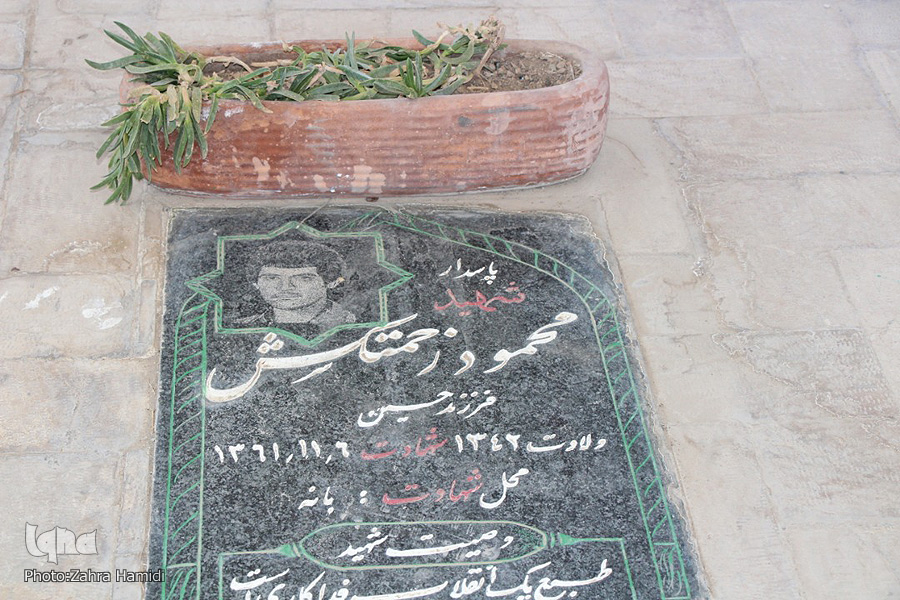 پاسدار
شهید
محمود زحمتکش
فرزند حسین
ولادت ۱۳۴۲ شهادت ۱۳۶۱/۱۱/۶
محل شهادت : بانه
وصیت شهید
طبع یک انقلاب فداکاری است
iqna
Photo:Zahra Hamidi